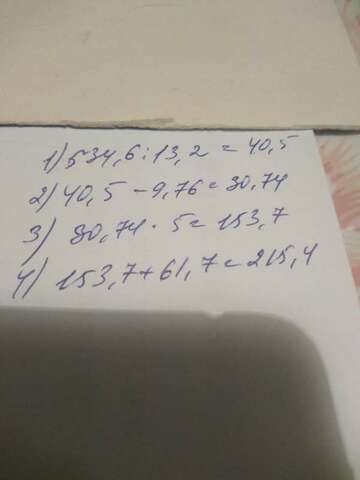 1) 534,6 : 13,2 = 40,5
2) 40,5 - 9,76 = 30,74
3) 30,74 · 5 = 153,7
4) 153,7 + 61,7 = 215,4